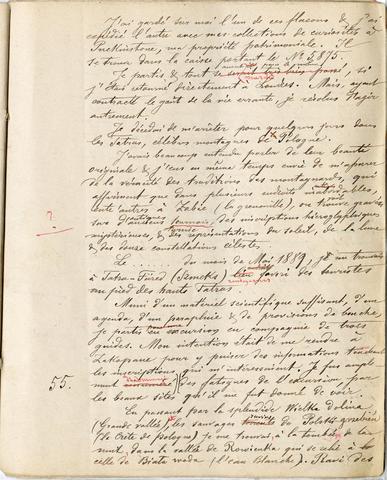 J'ai gardé sur moi l'un de ces flacons & j'ai
expédié l'autre avec mes collections de curiosités à
ma propriété patrimoniale. Il
se trouve dans la caisse portant le No 3,875.
Je partis & tout se si
j'étais retourné directement à Londres. Mais, ayant
contracté le goût de la vie errante, je résolus d'agir
autrement.
Je décidai de m'arrêter pour quelques jours dans
les Tatras, célèbres montagnes de Pologne.
J'avais beaucoup entendu parler de leur beauté
originale & j'eus en même temps envie de m'assurer
de la véracité des traditions des montagnards, qui
affirment que dans plusieurs endroits inabordables,
entre autres à Żabie (la grenouille), on trouve gravées
sur des inscriptions hiéroglyphiques
mystérieuses, & des représentations du soleil, de la lune
& des douze constellations célestes.
?
Le ..... du mois de Mai 1889, je me trouvais
à Tatra-Füred (Szmeks) des touristes
au pied des hauts Tatras
Muni d'un matériel scientifique suffisant, d'un
agenda, d'un parapluie & de provisions de bouche,
je partis en excursion en compagnie de trois
guides. Mon intention était de me rendre à
Zakopane pour y puiser des informations
les inscriptions qui m'intéressaient. Je fus ample-
55.
ment des fatigues de l'excursion par
les beaux sites qu'il me fut donné de voir.
En passant par la splendide Wielka dolina
(Grande vallée), les sauvages de Polski grzebień
(la Crête de Pologne) je me trouvai, à la tombée de la
nuit, dans la vallée de qui se relie à
celle de Biała woda (l'eau blanche). Ravi des